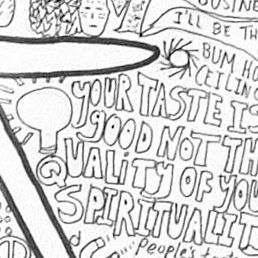 BUSINE
I'LL BE TH
BUM HO
CEILING
YOUR TASTE IS
GOOD NOT TH
QUALITY OF YOU
SPIRITUALIT
people's